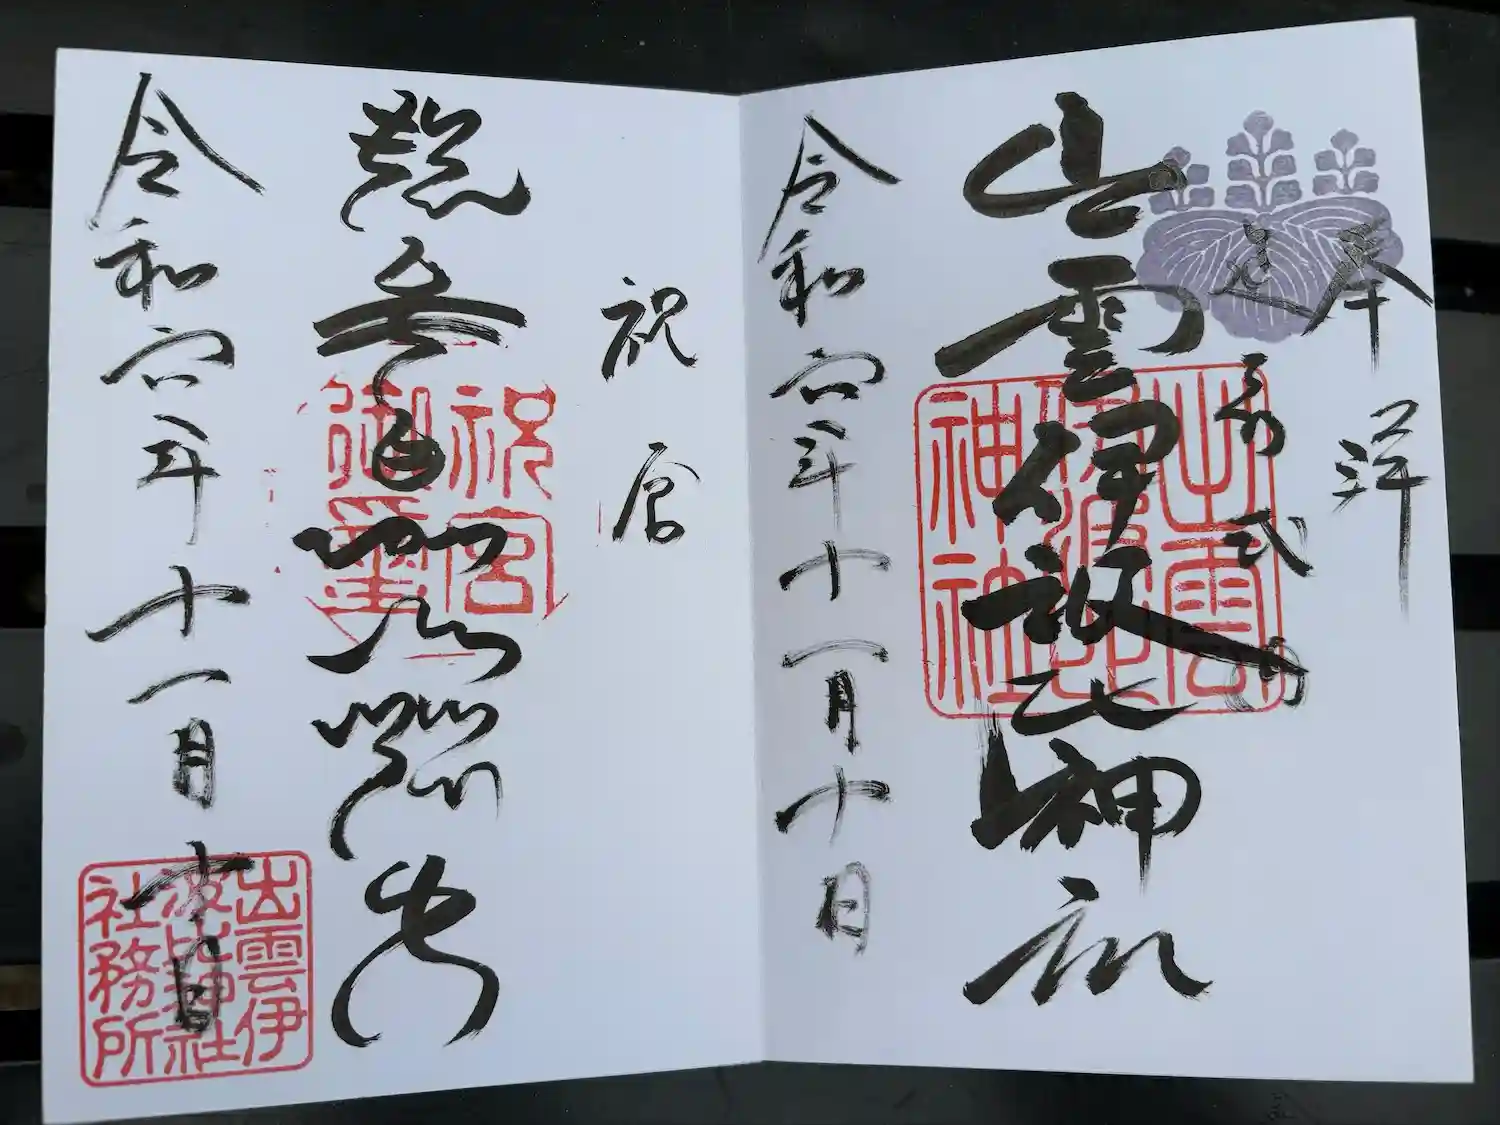 奉拝
延喜式内
出雲伊波比神社
出雲
伊波比
神社
令和六年十一月十日
祝宮
祝宮
御璽
令和六年十一月十日
出雲伊
波比神社
社務所